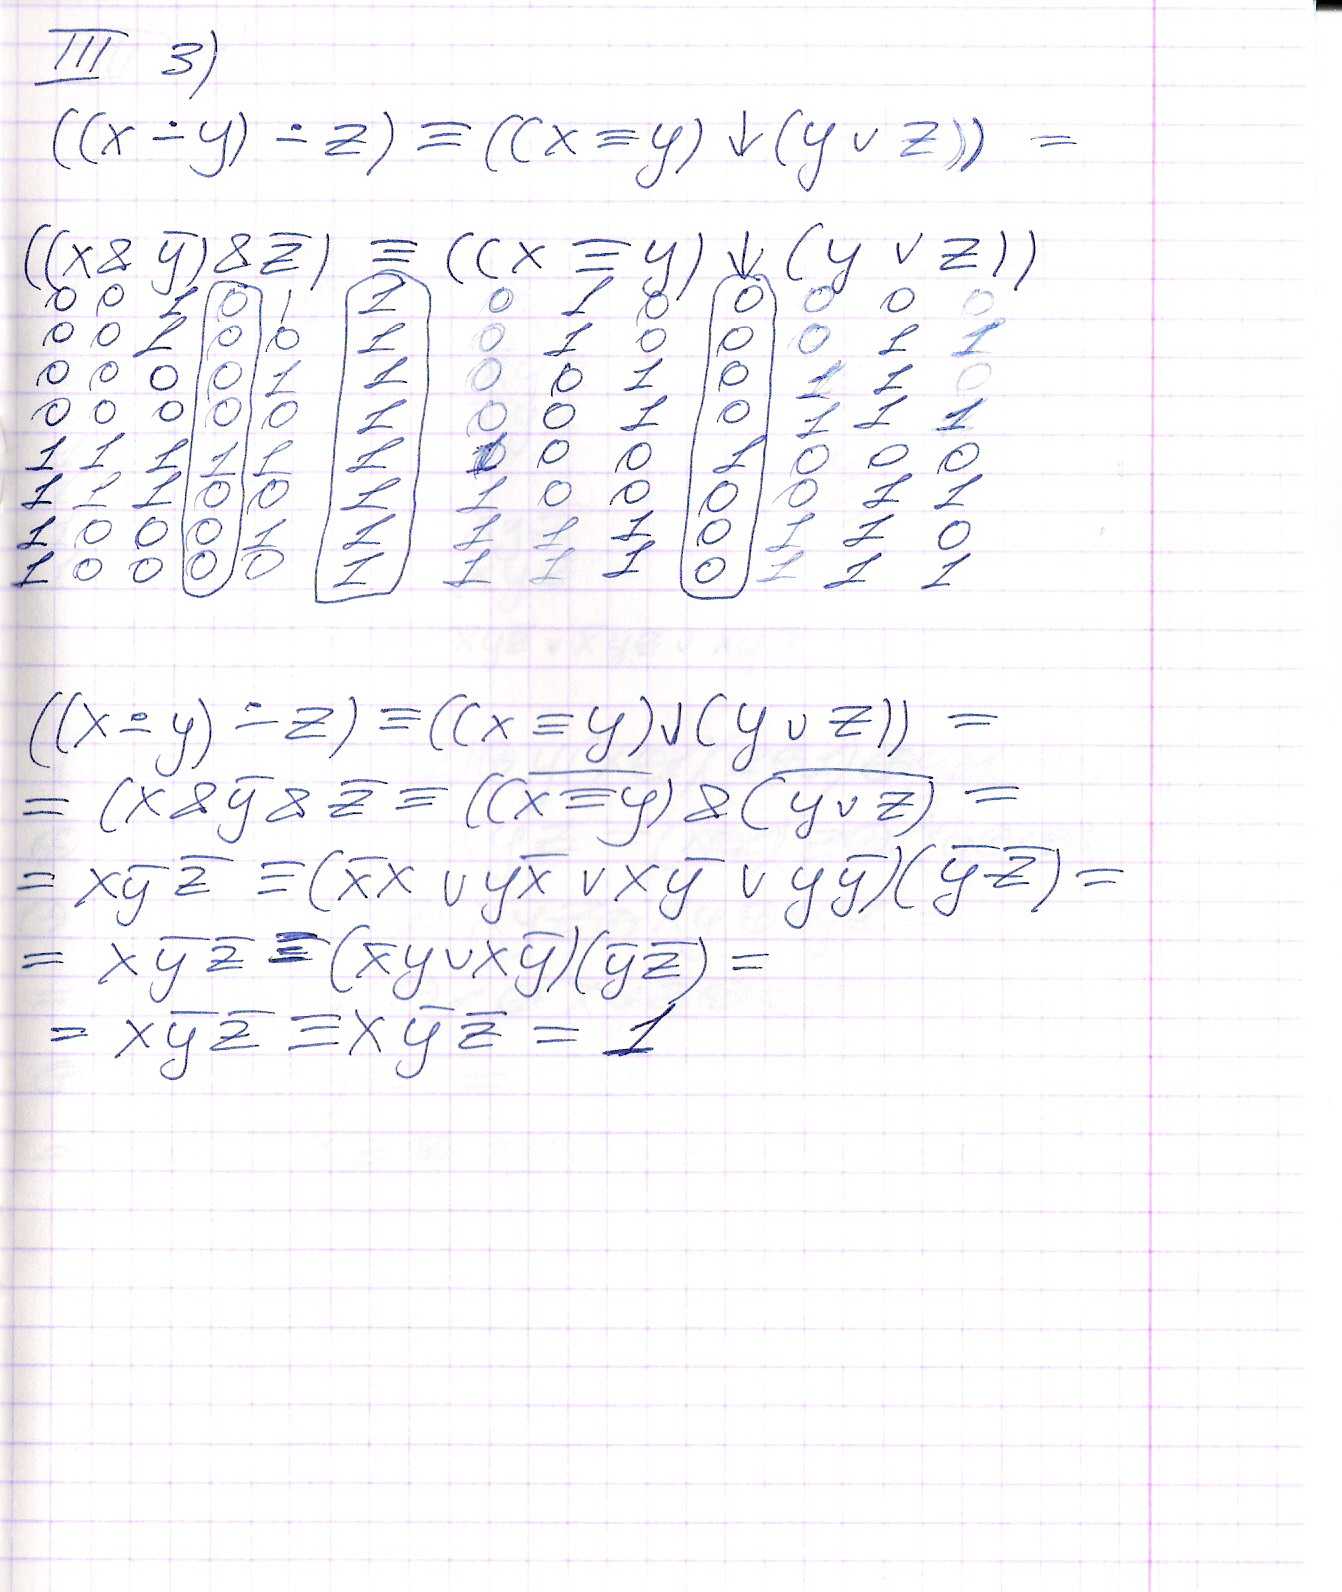 III 3)
((x ∸ y) ∸ z) ≡ ((x ≡ y) ↓ (y ∨ z)) =
((x & y̅) & z̅) ≡ ((x ≡ y) ↓ (y ∨ z))
0 0 1 0 1 1 0 1 0 0 0 0 0
0 0 1 0 0 1 0 1 0 0 0 1 1
0 0 0 0 1 1 0 0 1 0 1 1 0
0 0 0 0 0 1 0 0 1 0 1 1 1
1 1 1 1 1 1 1 0 0 1 0 0 0
1 1 1 0 0 1 1 0 0 0 0 1 1
1 0 0 0 1 1 1 1 1 0 1 1 0
1 0 0 0 0 1 1 1 1 0 1 1 1
((x ∸ y) ∸ z) ≡ ((x ≡ y) ↓ (y ∨ z)) =
= (x & y̅ & z̅ ≡ ((x̅ ≡̅ y̅) & (y̅ ∨̅ z̅) =
= x y̅ z̅ ≡ (x̅x ∨ yx̅ ∨ xy̅ ∨ yy̅)(y̅ z̅) =
= x y̅ z̅ ≡ (x̅y ∨ xy̅)(y̅ z̅) =
= x y̅ z̅ ≡ x y̅ z̅ = 1